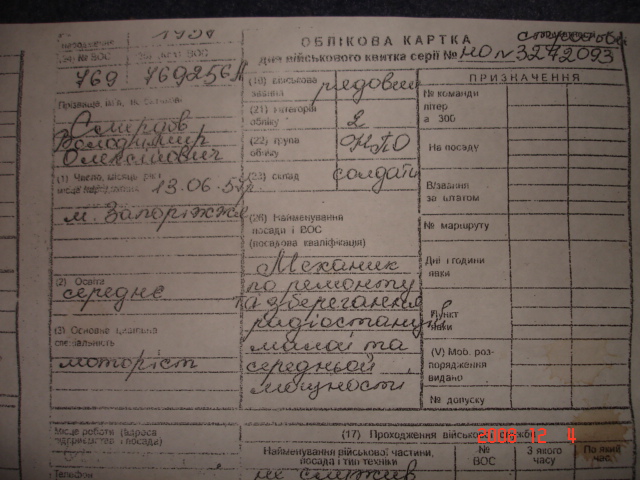 1957
народження
№ ВОС
ВОС
769 769256А
Прізвище, ім'я, по батькові
Смирнов
Володимир
Олексійович
(1) Число, місяць, рік і
місце народження 13.06.57р
м. Запоріжжя
(2) Освіта
середнє
(3) Основна цивільна
спеціальність
моторіст
Місце роботи (адреса
підприємства і посада)
Телефон
ОБЛІКОВА КАРТКА
для військового квитка серії № НО № 3272093
(18) військове
звання рядовий
(21) категорія
обліку 2
(22) група
обліку
(23) склад солдати
(26) Найменування
посади і ВОС
(посадова кваліфікація)
Механик
по ремонту
та зберегання
радіостанцій
малої та
середньой
мощности
ПРИЗНАЧЕННЯ
№ команди
літер
а 300
На посаду
Взвання
за штатом
№ маршруту
Дні і години
явки
Пункт
явки
(V) Моб. роз-
порядження
видано
№ допуску
(17) Проходження військової служби
2006 12 4
Найменування військової частини,
посада і тип техніки
№
ВОС
З якого
часу
По який
час
не служив